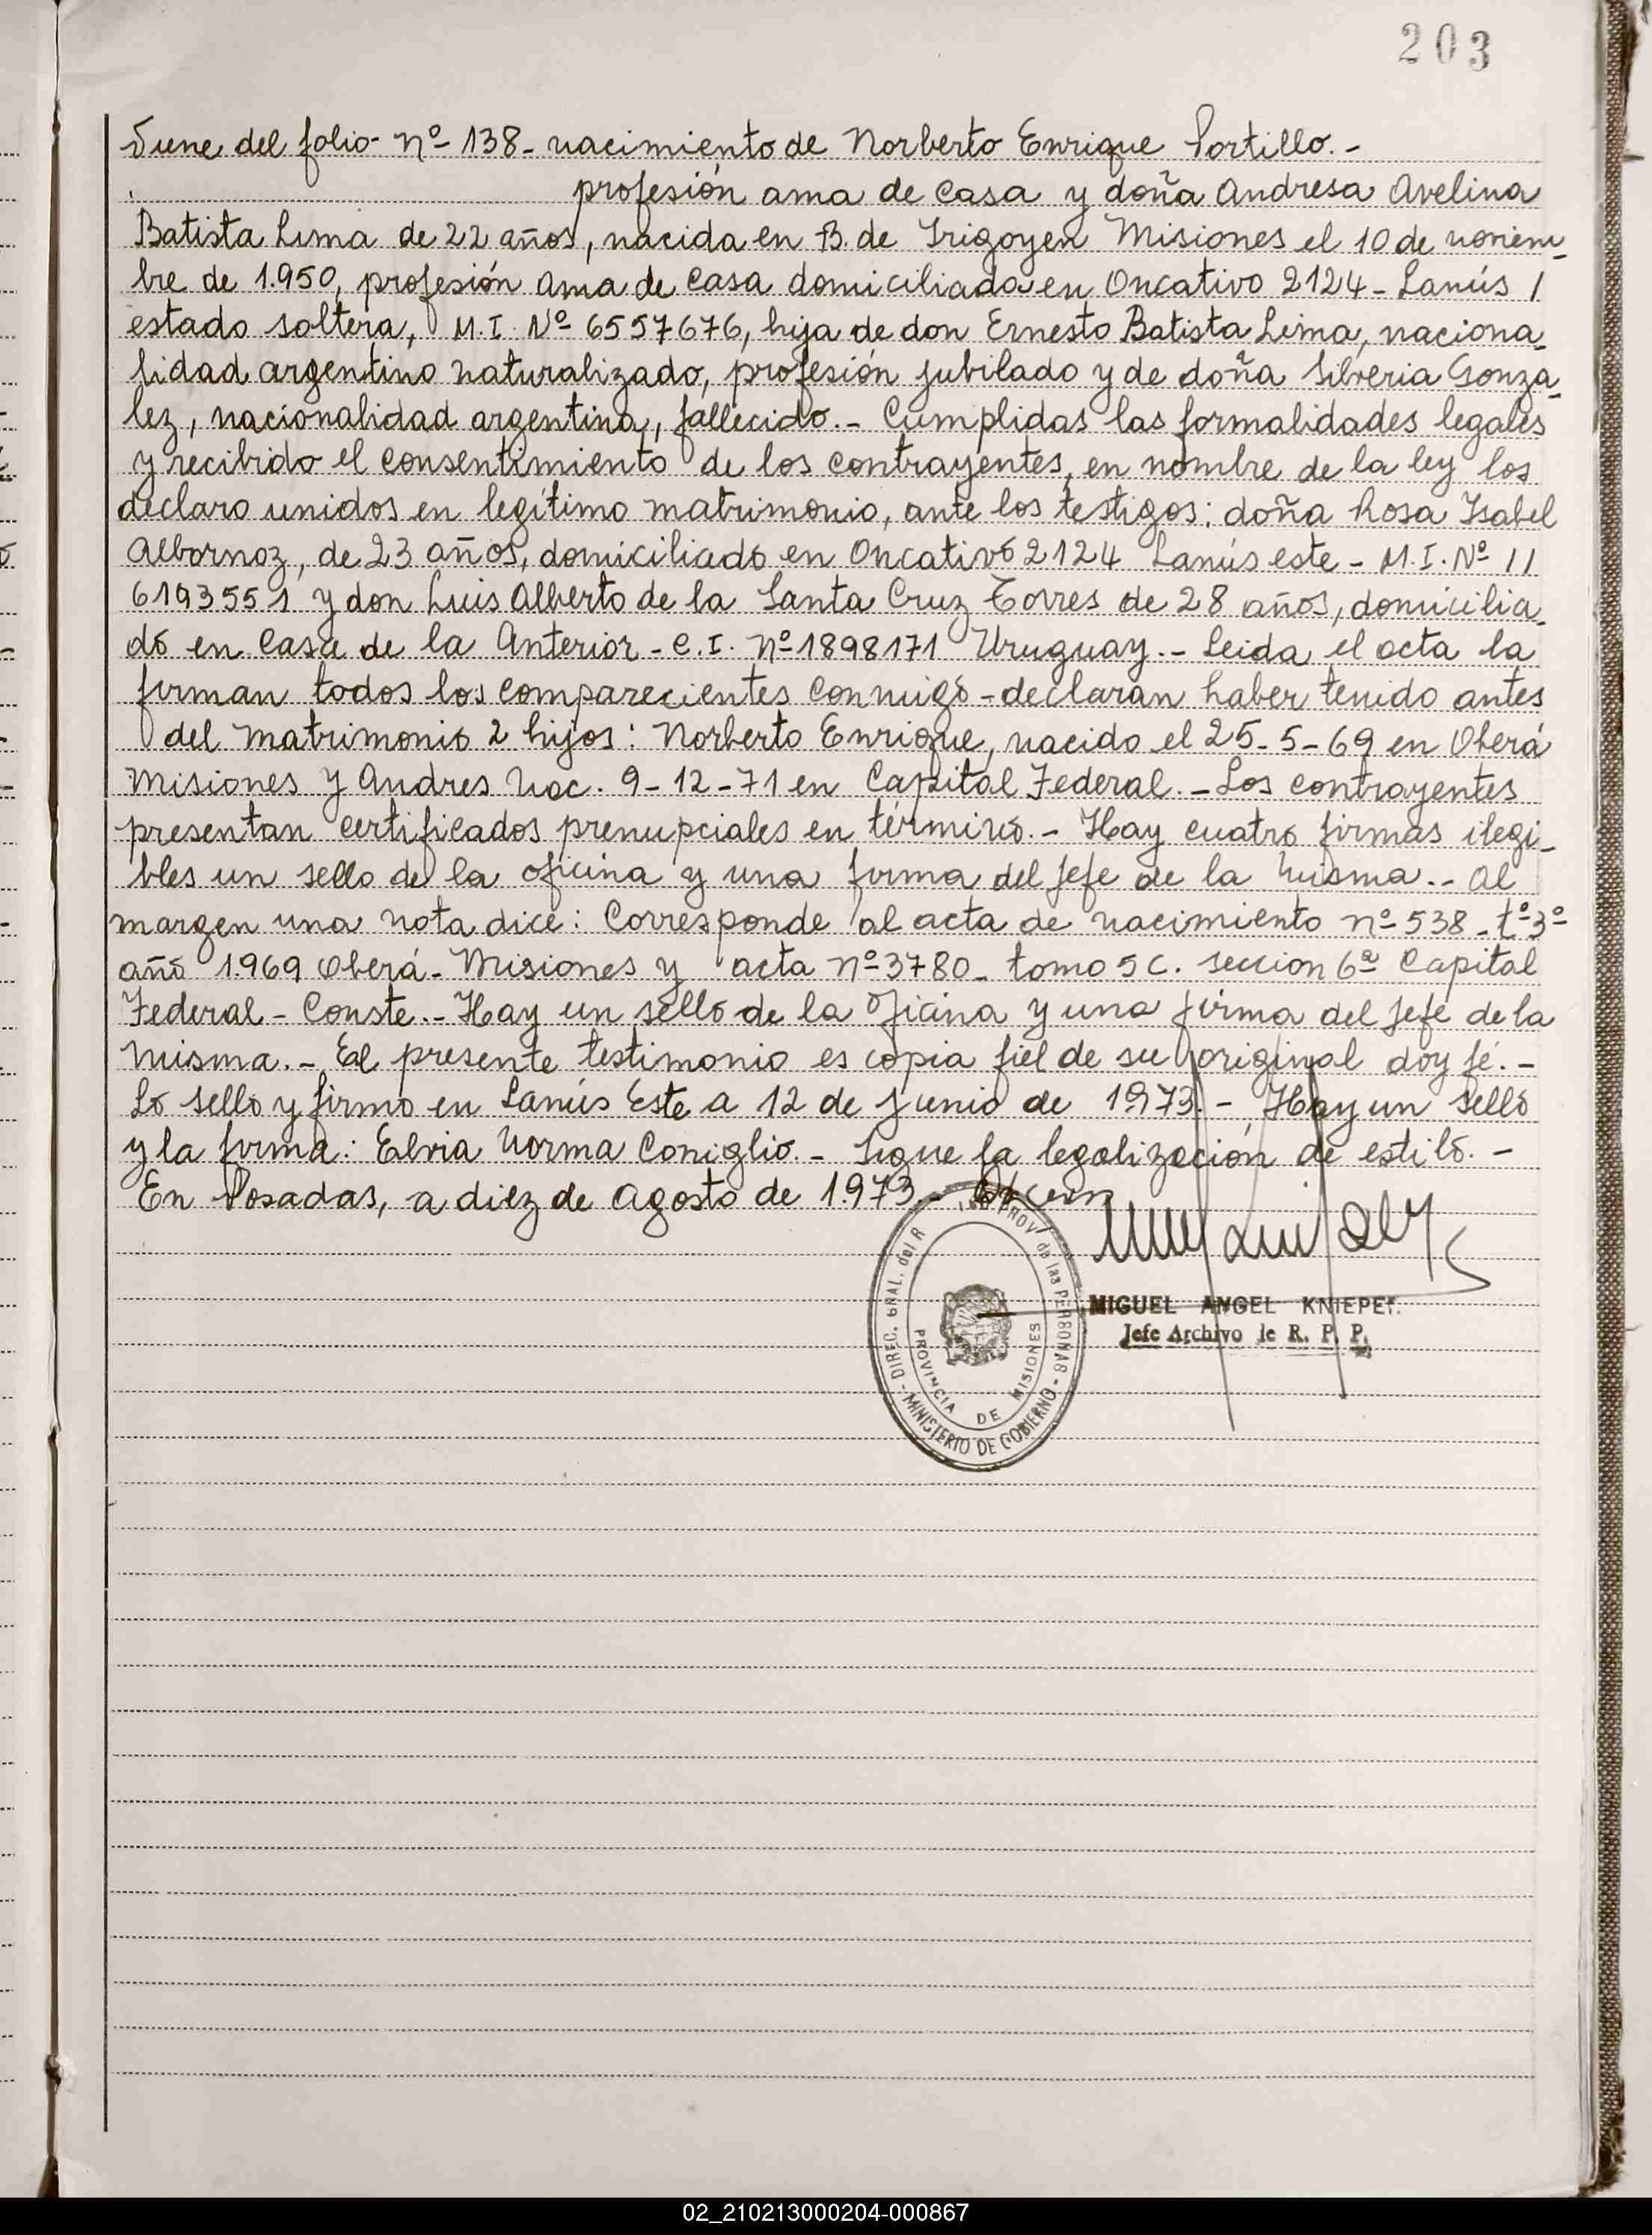 203
Viene del folio- nº- 138- nacimiento de Norberto Enrique Portillo.-
profesión ama de casa y doña Andresa Avelina
Batista Lima de 22 años, nacida en B. de Irigoyen Misiones el 10 de noviem-
bre de 1.950, profesión ama de casa domiciliada en Oncativo 2124- Lanús /
estado soltera, M.I. Nº 6557676, hija de don Ernesto Batista Lima, naciona-
lidad argentino naturalizado, profesión jubilado y de doña Silveria Gonza-
lez, nacionalidad argentina, fallecido.- Cumplidas las formalidades legales
y recibido el consentimiento de los contrayentes, en nombre de la ley los
declaro unidos en legítimo matrimonio, ante los testigos: doña Rosa Isabel
Albornoz, de 23 años, domiciliado en Oncativo 2124 Lanús este- M.I. Nº 11
6193551 y don Luis Alberto de la Santa Cruz Torres de 28 años, domicilia-
do en casa de la Anterior- C.I. Nº 1898171 Uruguay.- Leida el acta la
firman todos los comparecientes conmigo- declaran haber tenido antes
del matrimonio 2 hijos: Norberto Enrique, nacido el 25-5-69 en Oberá
Misiones y Andres nac. 9-12-71 en Capital Federal.- Los contrayentes
presentan certificados prenupciales en término.- Hay cuatro firmas ilegi-
bles un sello de la oficina y una firma del jefe de la misma.- Al
margen una nota dice: Corresponde al acta de nacimiento nº 538- tº 3º
año 1.969 Oberá- Misiones y acta nº 3780- tomo 5 C. seccion 6ª Capital
Federal- Conste.- Hay un sello de la oficina y una firma del jefe de la
misma.- El presente testimonio es copia fiel de su original doy fé.-
Lo sello y firmo en Lanús Este a 12 de junio de 1.973.- Hay un sello
y la firma: Elvia Norma Coniglio.- Sigue la legalización de estilo.-
En Posadas, a diez de Agosto de 1.973.-
DIREC. GRAL. del R PROV de las PERSONAS - MINISTERIO DE GOBIERNO -
PROVINCIA DE MISIONES
MIGUEL ANGEL KNIEPEI.
Jefe Archivo le R. P. P.
02_210213000204-000867